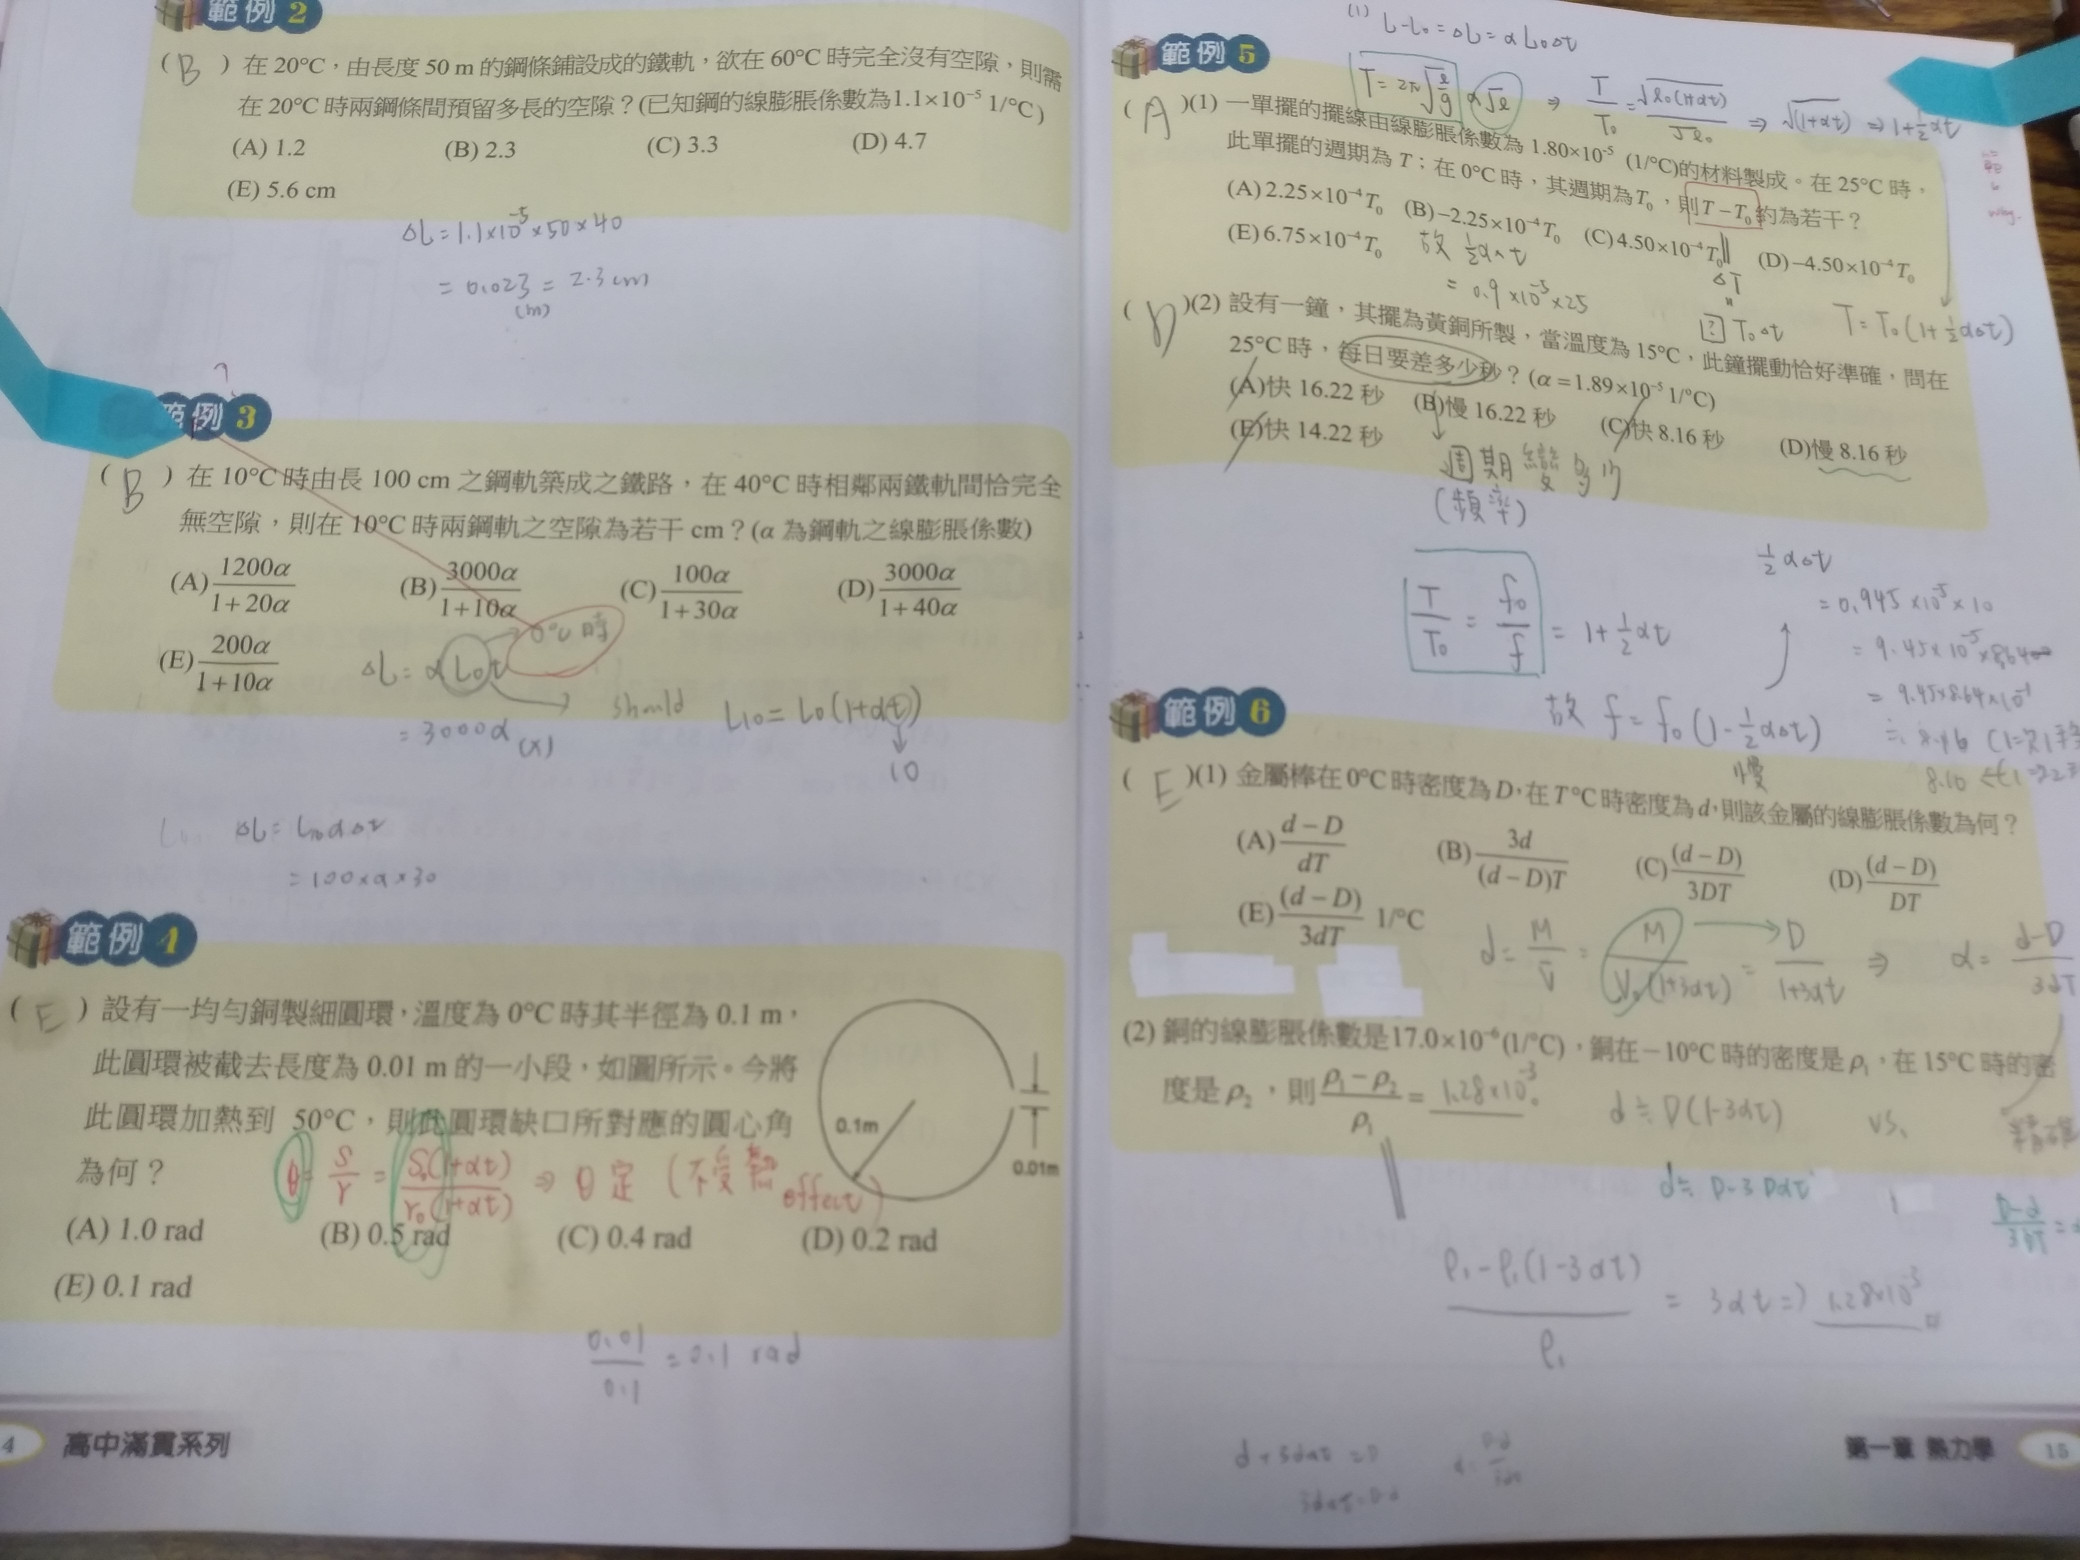 範例 2
( B ) 在 20°C，由長度 50 m 的鋼條鋪設成的鐵軌，欲在 60°C 時完全沒有空隙，則需
在 20°C 時兩鋼條間預留多長的空隙？(已知鋼的線膨脹係數為1.1×10⁻⁵ 1/°C)
(A) 1.2 (B) 2.3 (C) 3.3 (D) 4.7
(E) 5.6 cm
ΔL = 1.1×10⁻⁵×50×40
= 0.023 = 2.3 cm
(m)
範例 3
( B ) 在 10°C 時由長 100 cm 之鋼軌築成之鐵路，在 40°C 時相鄰兩鐵軌間恰完全
無空隙，則在 10°C 時兩鋼軌之空隙為若干 cm？(α 為鋼軌之線膨脹係數)
(A) 1200α/(1+20α) (B) 3000α/(1+10α) (C) 100α/(1+30α) (D) 3000α/(1+40α)
(E) 200α/(1+10α)
0°C 時
ΔL = αL₀t
should L₁₀ = L₀(1+αt)
= 3000α (x)
10
ΔL = L₁₀αΔt
= 100×α×30
範例 4
( E ) 設有一均勻銅製細圓環，溫度為 0°C 時其半徑為 0.1 m，
此圓環被截去長度為 0.01 m 的一小段，如圖所示。今將
此圓環加熱到 50°C，則此圓環缺口所對應的圓心角
為何？
0.1m
0.01m
θ = S/r = S₀(1+αt)/r₀(1+αt) ⇒ θ 定 (不受熱 effect)
(A) 1.0 rad (B) 0.5 rad (C) 0.4 rad (D) 0.2 rad
(E) 0.1 rad
0.01/0.1 = 0.1 rad
4 高中滿貫系列
(1) L-L₀ = ΔL = αL₀Δt
範例 5
T = 2π√(ℓ/g) ∝ √ℓ ⇒ T/T₀ = √ℓ₀(1+αt)/√ℓ₀ ⇒ √(1+αt) ⇒ 1+½αt
( A )(1) 一單擺的擺線由線膨脹係數為 1.80×10⁻⁵ (1/°C)的材料製成。在 25°C 時，
此單擺的週期為 T；在 0°C 時，其週期為T₀，則T－T₀約為若干？
(A) 2.25×10⁻⁴T₀ (B) −2.25×10⁻⁴T₀ (C) 4.50×10⁻⁴T₀ (D) −4.50×10⁻⁴T₀
(E) 6.75×10⁻⁴T₀
why.
故 ½αΔt
= 0.9×10⁻⁵×25
ΔT
T₀Δt
T = T₀(1+½αΔt)
( D )(2) 設有一鐘，其擺為黃銅所製，當溫度為 15°C，此鐘擺動恰好準確，問在
25°C 時，每日要差多少秒？(α＝1.89×10⁻⁵ 1/°C)
(A)快 16.22 秒 (B)慢 16.22 秒 (C)快 8.16 秒 (D)慢 8.16 秒
(E)快 14.22 秒
週期變多少
(頻率)
T/T₀ = f₀/f = 1+½αt
½αΔt
= 0.945×10⁻⁵×10
= 9.45×10⁻⁵×86400
= 9.45×8.64×10⁻¹
故 f = f₀(1-½αΔt)
慢
範例 6
( E )(1) 金屬棒在0°C時密度為D，在T°C時密度為d，則該金屬的線膨脹係數為何？
(A) (d−D)/dT (B) 3d/(d−D)T (C) (d−D)/3DT (D) (d−D)/DT
(E) (d−D)/3dT 1/°C
d = M/V = M/V₀(1+3αt) = D/(1+3αt) ⇒ α = d-D/3dT
(2) 銅的線膨脹係數是17.0×10⁻⁶(1/°C)，銅在－10°C 時的密度是ρ₁，在 15°C 時的密
度是ρ₂，則 (ρ₁−ρ₂)/ρ₁ = 1.28×10⁻³。
d ≒ D(1-3αt) vs. 精確
d ≒ D-3Dαt
D-d/3DT =
ρ₁-ρ₁(1-3αt)/ρ₁ = 3αt ⇒ 1.28×10⁻³
第一章 熱力學 15